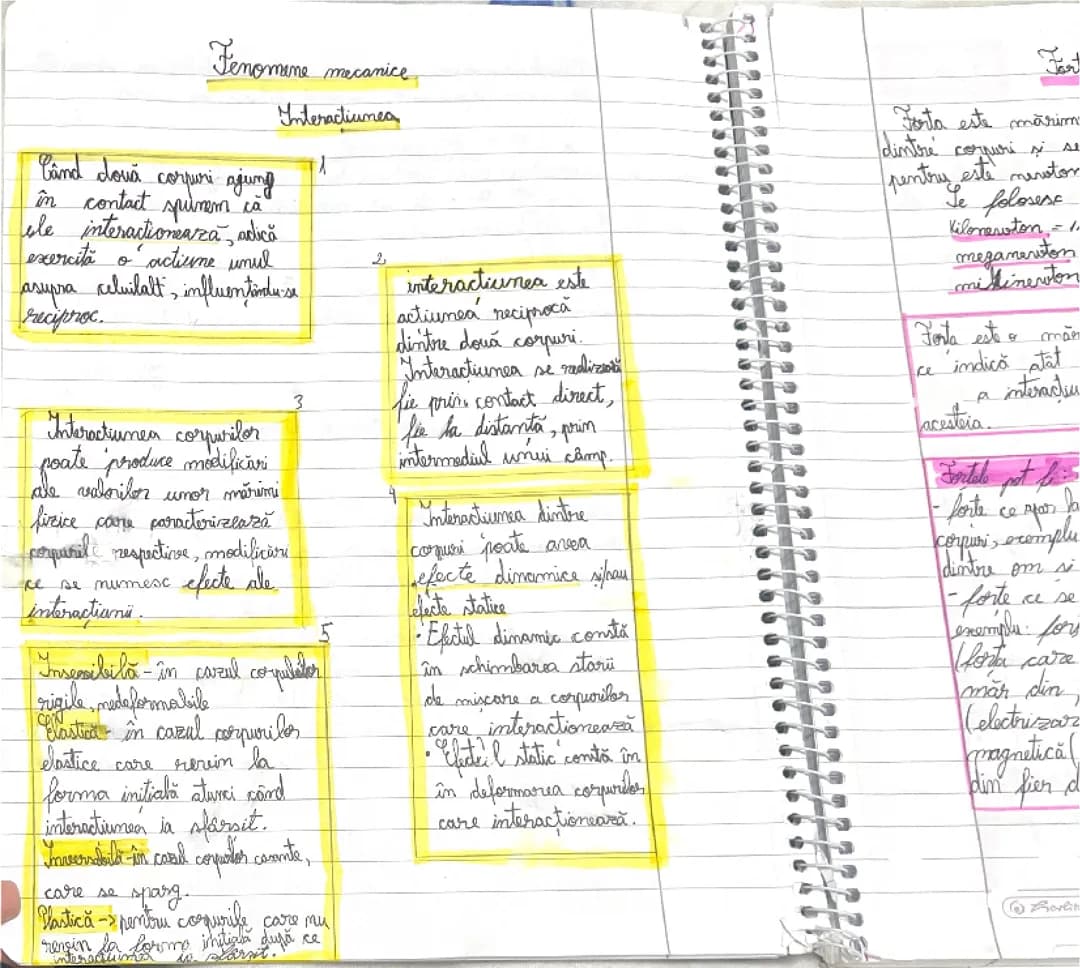 Fenomene mecanice
Interactiunea
1
Când două corpuri ajung
în contact spunem că
ele interactionează, adică
exercită o actiune unul
asupra celuilalt, influentându-se
reciproc.
2
interactiunea este
actiunea reciprocă
dintre două corpuri.
Interacțiunea se realizează
fie prin contact direct,
fie la distantă, prin
intermediul unui câmp.
3
Interactiunea corpurilor
poate produce modificări
ale valorilor unor mărimi
fizice care paracterizează
corpurile respective, modificări
ce se numesc efecte ale
interacțiunii.
4
Interactiunea dintre
corpuri poate avea
efecte dinamice și/sau
efecte statice
• Efectul dinamic constă
în schimbarea starii
de mișcare a corpurilor
care interactionează
• Efectul static constă în
în deformarea corpurilor
care interacționează.
5
Insensibilă - în cazul corpurilor
rigile, nedeformabile
Elastică - în cazul corpurilor
elastice care revin la
forma initială atunci când
interactiunea ia sfârsit.
în cazul corpurilor casante,
care se sparg.
Plastică -> pentru corpurile care nu
revin la forma initială după ce
interactiunea ia sfârsit.
Fort
Forta este mărim
dintre corpuri și se
pentru este newton
Se folosesc
Kilonewton = 1
meganewton
milinewton
Forta este o măr
ce indică atât
a interactiu
acesteia.
Fortele pot fi:
- forte ce apar la
corpuri, exemplu
dintre om si
- forte ce se
exemplu: for
(forta care
măr din
(electrizar
magnetică (
din fier d